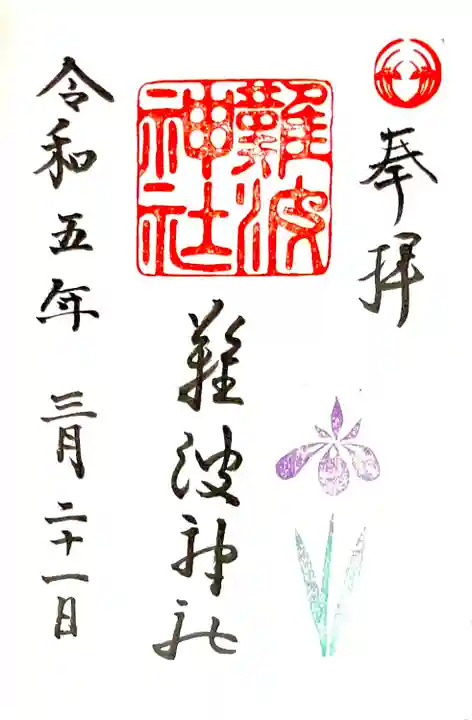 奉拝
難波
神社
難波神社
令和五年 三月二十一日